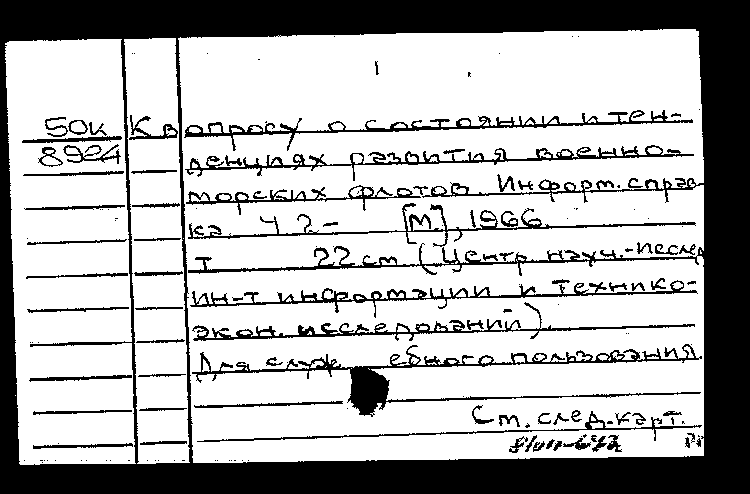 50к К вопросу о состоянии и тен-
8924 денциях развития военно-
морских флотов. Информ. справ-
ка. Ч 2- [М.], 1966.
т 22 см (Центр. науч.-исслед.
ин-т информации и технико-
экон. исследований).
Для служебного пользования.
См. след. карт.